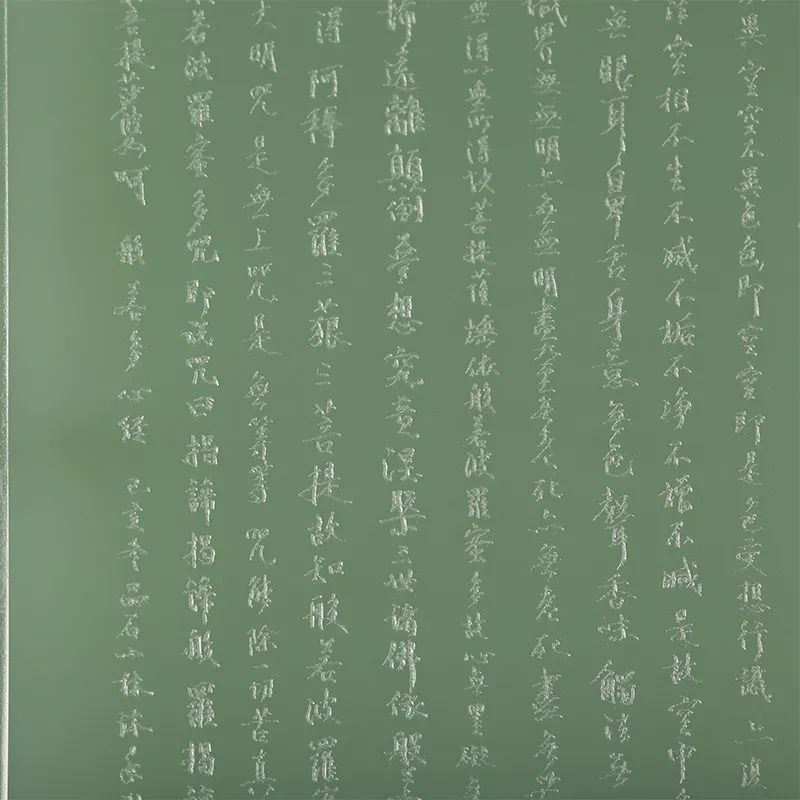 異空空不異色色即空空即是色受想行識亦復
空相不生不滅不垢不淨不增不減是故空中
無眼耳鼻舌身意無色聲香味觸法無
識界無無明亦無無明盡乃至無老死亦無老死盡無
無得以無所得故菩提薩埵依般若波羅蜜多故心無罣礙
怖遠離顛倒夢想究竟涅槃三世諸佛依般
得阿耨多羅三藐三菩提故知般若波羅蜜
大明咒是無上咒是無等等咒能除一切苦真
若波羅蜜多咒即說咒曰揭諦揭諦般羅揭
菩提薩婆訶 般若多心經 己亥冬品石山